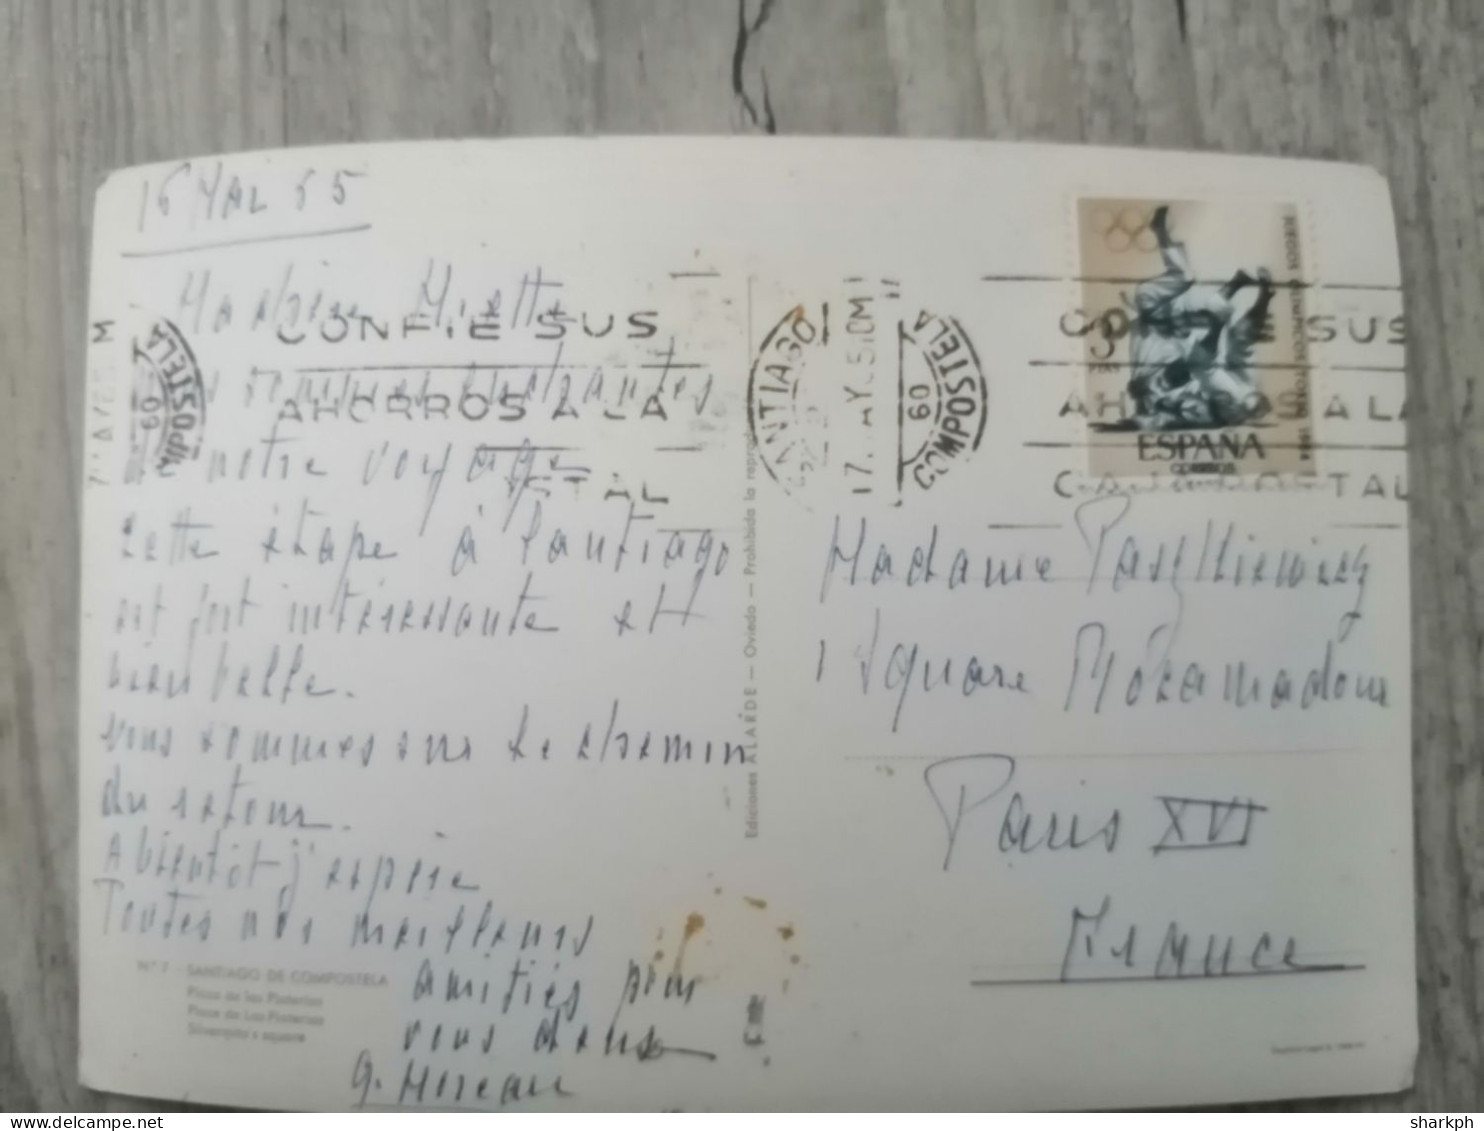 16 Mai 65
CONFIE SUS
AHORROS A LA
STAL
60
COMPOSTELA
notre voyage
Cette étape à Santiago
est fort intéressante et
bien belle.
nous sommes sur le chemin
du retour.
A bientôt j'espère
Toutes nos meilleures
amitiés pour
vous deux
G. Moreau
Nº 7 - SANTIAGO DE COMPOSTELA
Plaza de las Platerías
Place de Las Platerías
Silversmith's square
Ediciones ALARDE — Oviedo — Prohibida la reprod
SANTIAGO
60
COMPOSTELA
CONFIE SUS
AHORROS A LA
CAJA POSTAL
3
PTAS
ESPAÑA
CORREOS
JUEGOS OLIMPICOS
1964
Madame
1 Square Rocamadour
Paris XVI
France
sharkph